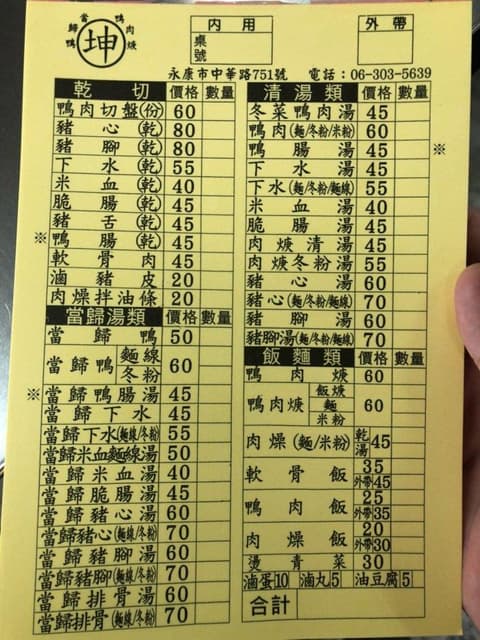 當歸鴨 坤 鴨肉焿
內用
桌號
外帶
永康市中華路751號 電話:06-303-5639
乾切 價格 數量
鴨肉切盤(份) 60
豬心(乾) 80
豬腳(乾) 80
下水(乾) 55
米血(乾) 40
脆腸(乾) 45
豬舌(乾) 45
※鴨腸(乾) 45
軟骨肉 45
滷豬皮 20
肉燥拌油條 20
當歸湯類 價格 數量
當歸鴨 50
當歸鴨 麵線 冬粉 60
※當歸鴨腸湯 45
當歸下水 45
當歸下水(麵線/冬粉) 55
當歸米血麵線湯 50
當歸米血湯 40
當歸脆腸湯 45
當歸豬心湯 60
當歸豬心(麵線/冬粉) 70
當歸豬腳湯 60
當歸豬腳(麵線/冬粉) 70
當歸排骨湯 60
當歸排骨(麵線/冬粉) 70
清湯類 價格 數量
冬菜鴨肉湯 45
鴨肉(麵/冬粉/米粉) 60
鴨腸湯 45 ※
下水湯 45
下水(麵/冬粉/麵線) 55
米血湯 40
脆腸湯 45
肉焿清湯 45
肉焿冬粉湯 55
豬心湯 60
豬心(麵/冬粉/麵線) 70
豬腳湯 60
豬腳湯(麵/冬粉/麵線) 70
飯麵類 價格 數量
鴨肉焿 60
鴨肉焿 飯焿 麵 米粉 60
肉燥(麵/米粉) 乾湯 45
軟骨飯 35 外帶45
鴨肉飯 25 外帶35
肉燥飯 20 外帶30
燙青菜 30
滷蛋10 滷丸5 油豆腐5
合計